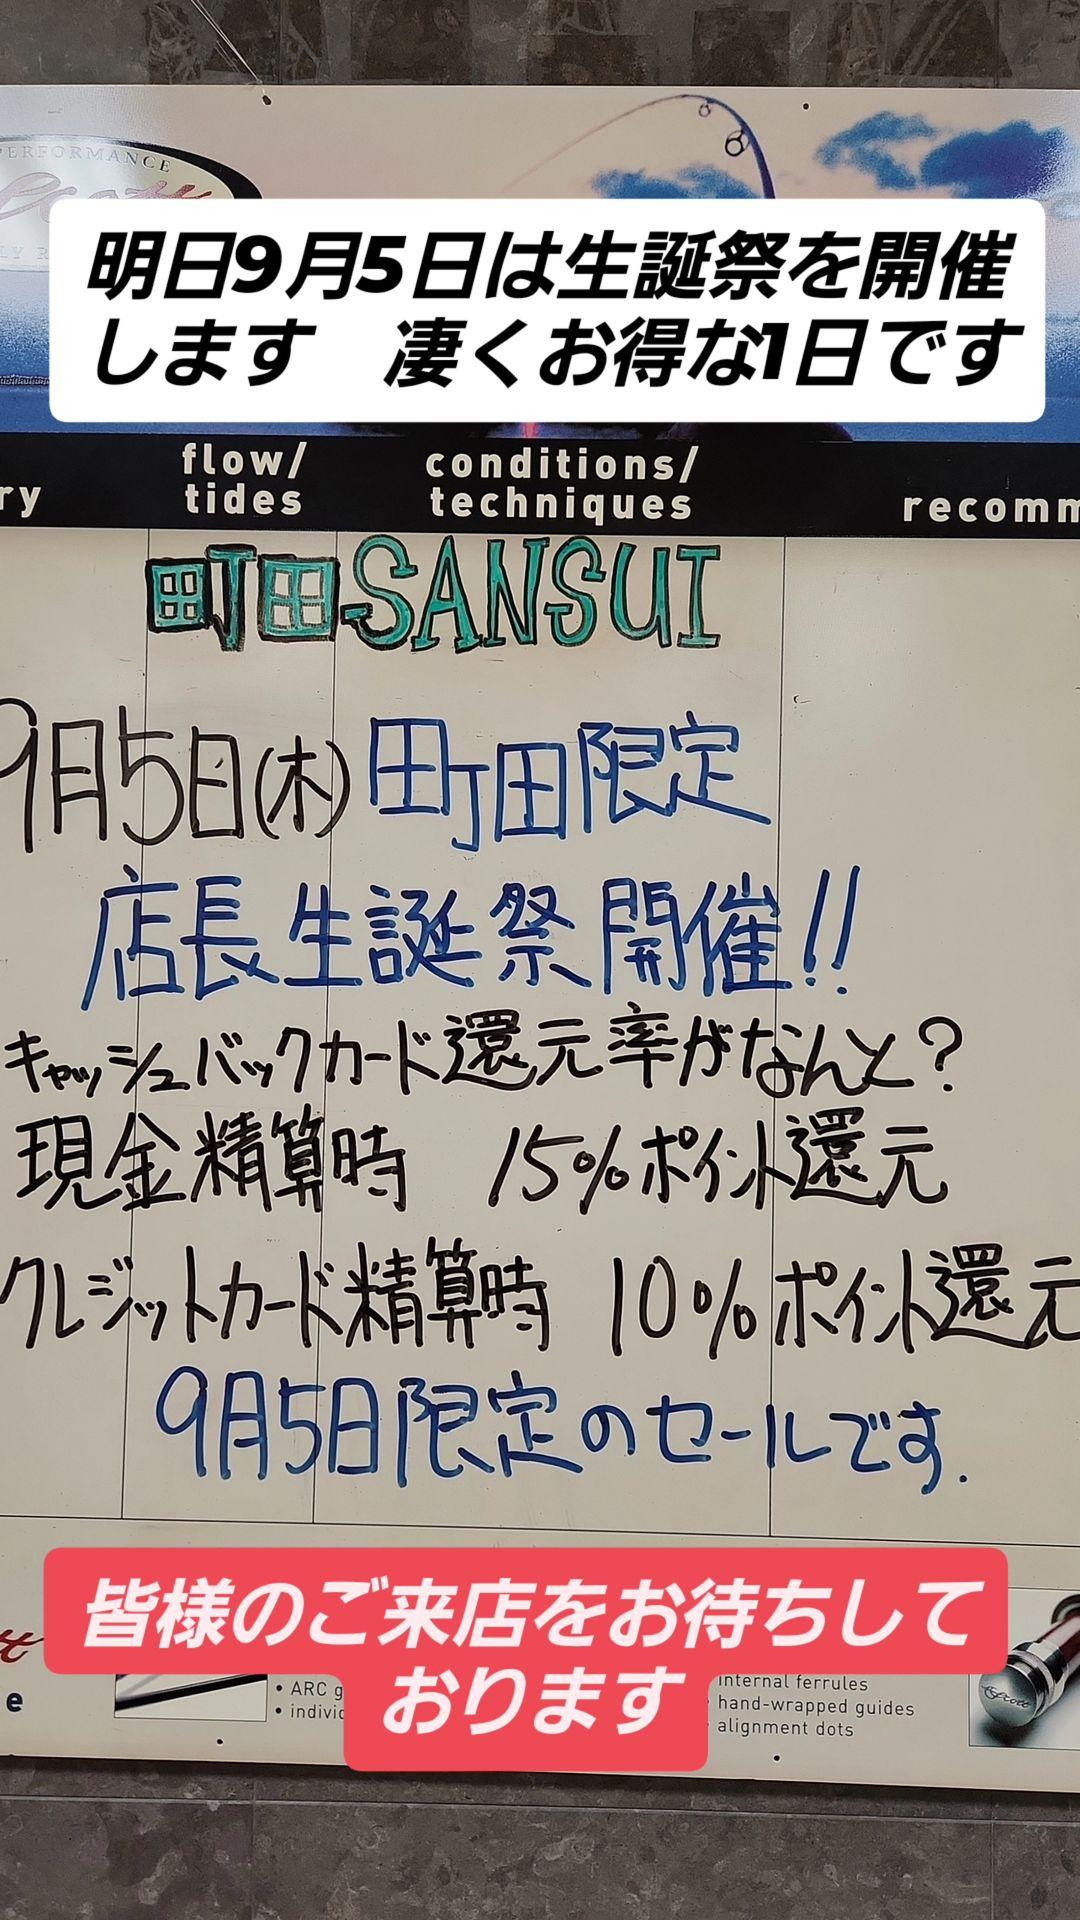 PERFORMANCE
Scott
明日9月5日は生誕祭を開催
します　凄くお得な1日です
flow/
tides
conditions/
techniques
ry
recomm
町田SANSUI
9月5日(木)町田限定
店長生誕祭開催!!
キャッシュバックカード還元率がなんと?
現金精算時 15%ポイント還元
クレジットカード精算時 10%ポイント還元
9月5日限定のセールです.
皆様のご来店をお待ちして
おります
e
• ARC g
• indivi
internal ferrules
hand-wrapped guides
alignment dots
Scott